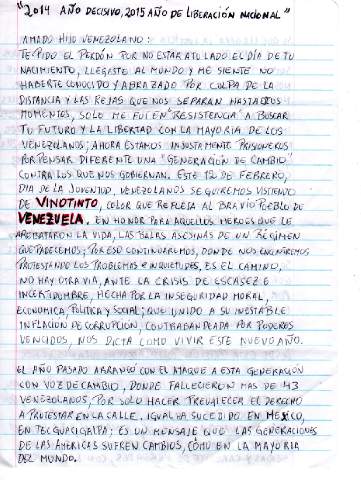 "2014 AÑO DECISIVO, 2015 AÑO DE LIBERACIÓN NACIONAL"
AMADO HIJO VENEZOLANO:
TE PIDO EL PERDÓN POR NO ESTAR A TU LADO EL DÍA DE TU
NACIMIENTO, LLEGASTE AL MUNDO Y ME SIENTE NO
HABERTE CONOCIDO Y ABRAZADO POR CULPA DE LA
DISTANCIA Y LAS REJAS QUE NOS SEPARAN HASTA LOS
MOMENTOS, SOLO ME FUI EN "RESISTENCIA" A BUSCAR
TU FUTURO Y LA LIBERTAD CON LA MAYORIA DE LOS
VENEZOLANOS; AHORA ESTAMOS INJUSTAMENTE PRISIONEROS
POR PENSAR DIFERENTE UNA "GENERACIÓN DE CAMBIO"
CONTRA LOS QUE NOS GOBIERNAN. ESTE 12 DE FEBRERO,
DIA DE LA JUVENTUD, VENEZOLANOS SEGUIREMOS VISTIENDO
DE VINOTINTO, COLOR QUE REFLEJA AL BRAVÍO PUEBLO DE
VENEZUELA. EN HONOR PARA AQUELLOS HEROES QUE LE
AREBATARON LA VIDA, LAS BALAS ASESINAS DE UN RÉGIMEN
QUE PADECEMOS; POR ESO CONTINUAREMOS, DONDE NOS ENCONTREMOS
PROTESTANDO LOS PROBLEMAS E INQUIETUDES, ES EL CAMINO,
NO HAY OTRA VIA, ANTE LA CRISIS DE ESCASEZ E
INCERTIDUMBRE, HECHA POR LA INSEGURIDAD MORAL,
ECONOMICA, POLITICA Y SOCIAL; QUE UNIDO A SU INESTABLE
INFLACION DE CORRUPCION, CONTRABANDEADA POR PODERES
VENCIDOS, NOS DICTA COMO VIVIR ESTE NUEVO AÑO.
EL AÑO PASADO ARRANCÓ CON EL ATAQUE A ESTA GENERACIÓN
CON VOZ DE CAMBIO, DONDE FALLECIERON MAS DE 43
VENEZOLANOS, POR SOLO HACER PREVALECER EL DERECHO
A PROTESTAR EN LA CALLE. IGUAL HA SUCEDIDO EN MEXICO,
EN TECGUACIGALPA; ES UN MENSAJE QUE LAS GENERACIONES
DE LAS AMÉRICAS SUFREN CAMBIOS, CÓMO EN LA MAYORIA
DEL MUNDO.